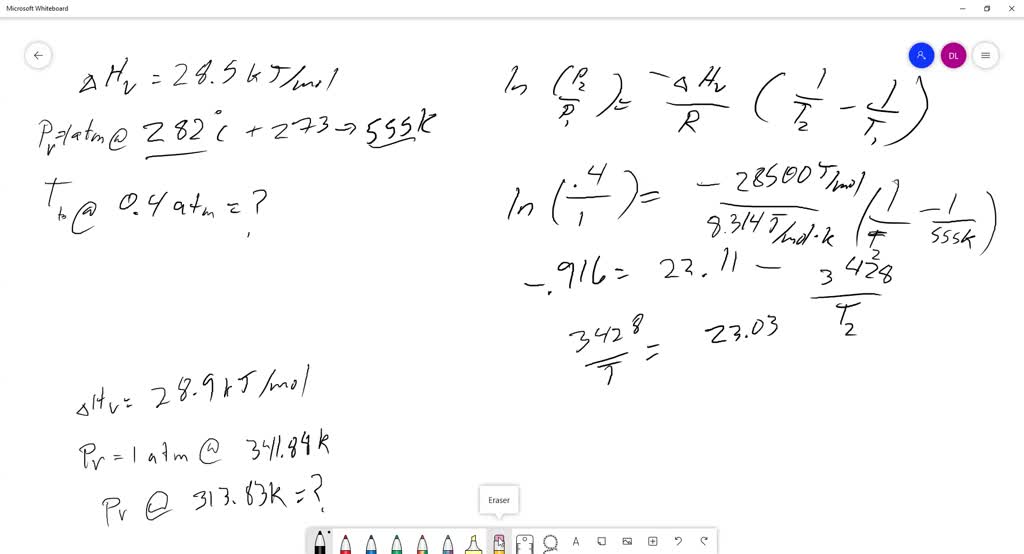 Microsoft Whiteboard
DL
ΔHv = 28.5 kJ/mol
Pv=1atm@ 282°C + 273 → 555K
T to @ 0.4 atm = ?
ln (P2/P1) = -ΔHv/R (1/T2 - 1/T1)
ln (.4/1) = - 28500 J/mol / 8.314 J/mol·K (1/T2 - 1/555K)
-.916 = 22.11 - 3428/T2
3428/T = 23.03
ΔHv = 28.9 kJ/mol
Pv = 1 atm @ 341.89K
Pv @ 313.83K = ?
Eraser
A